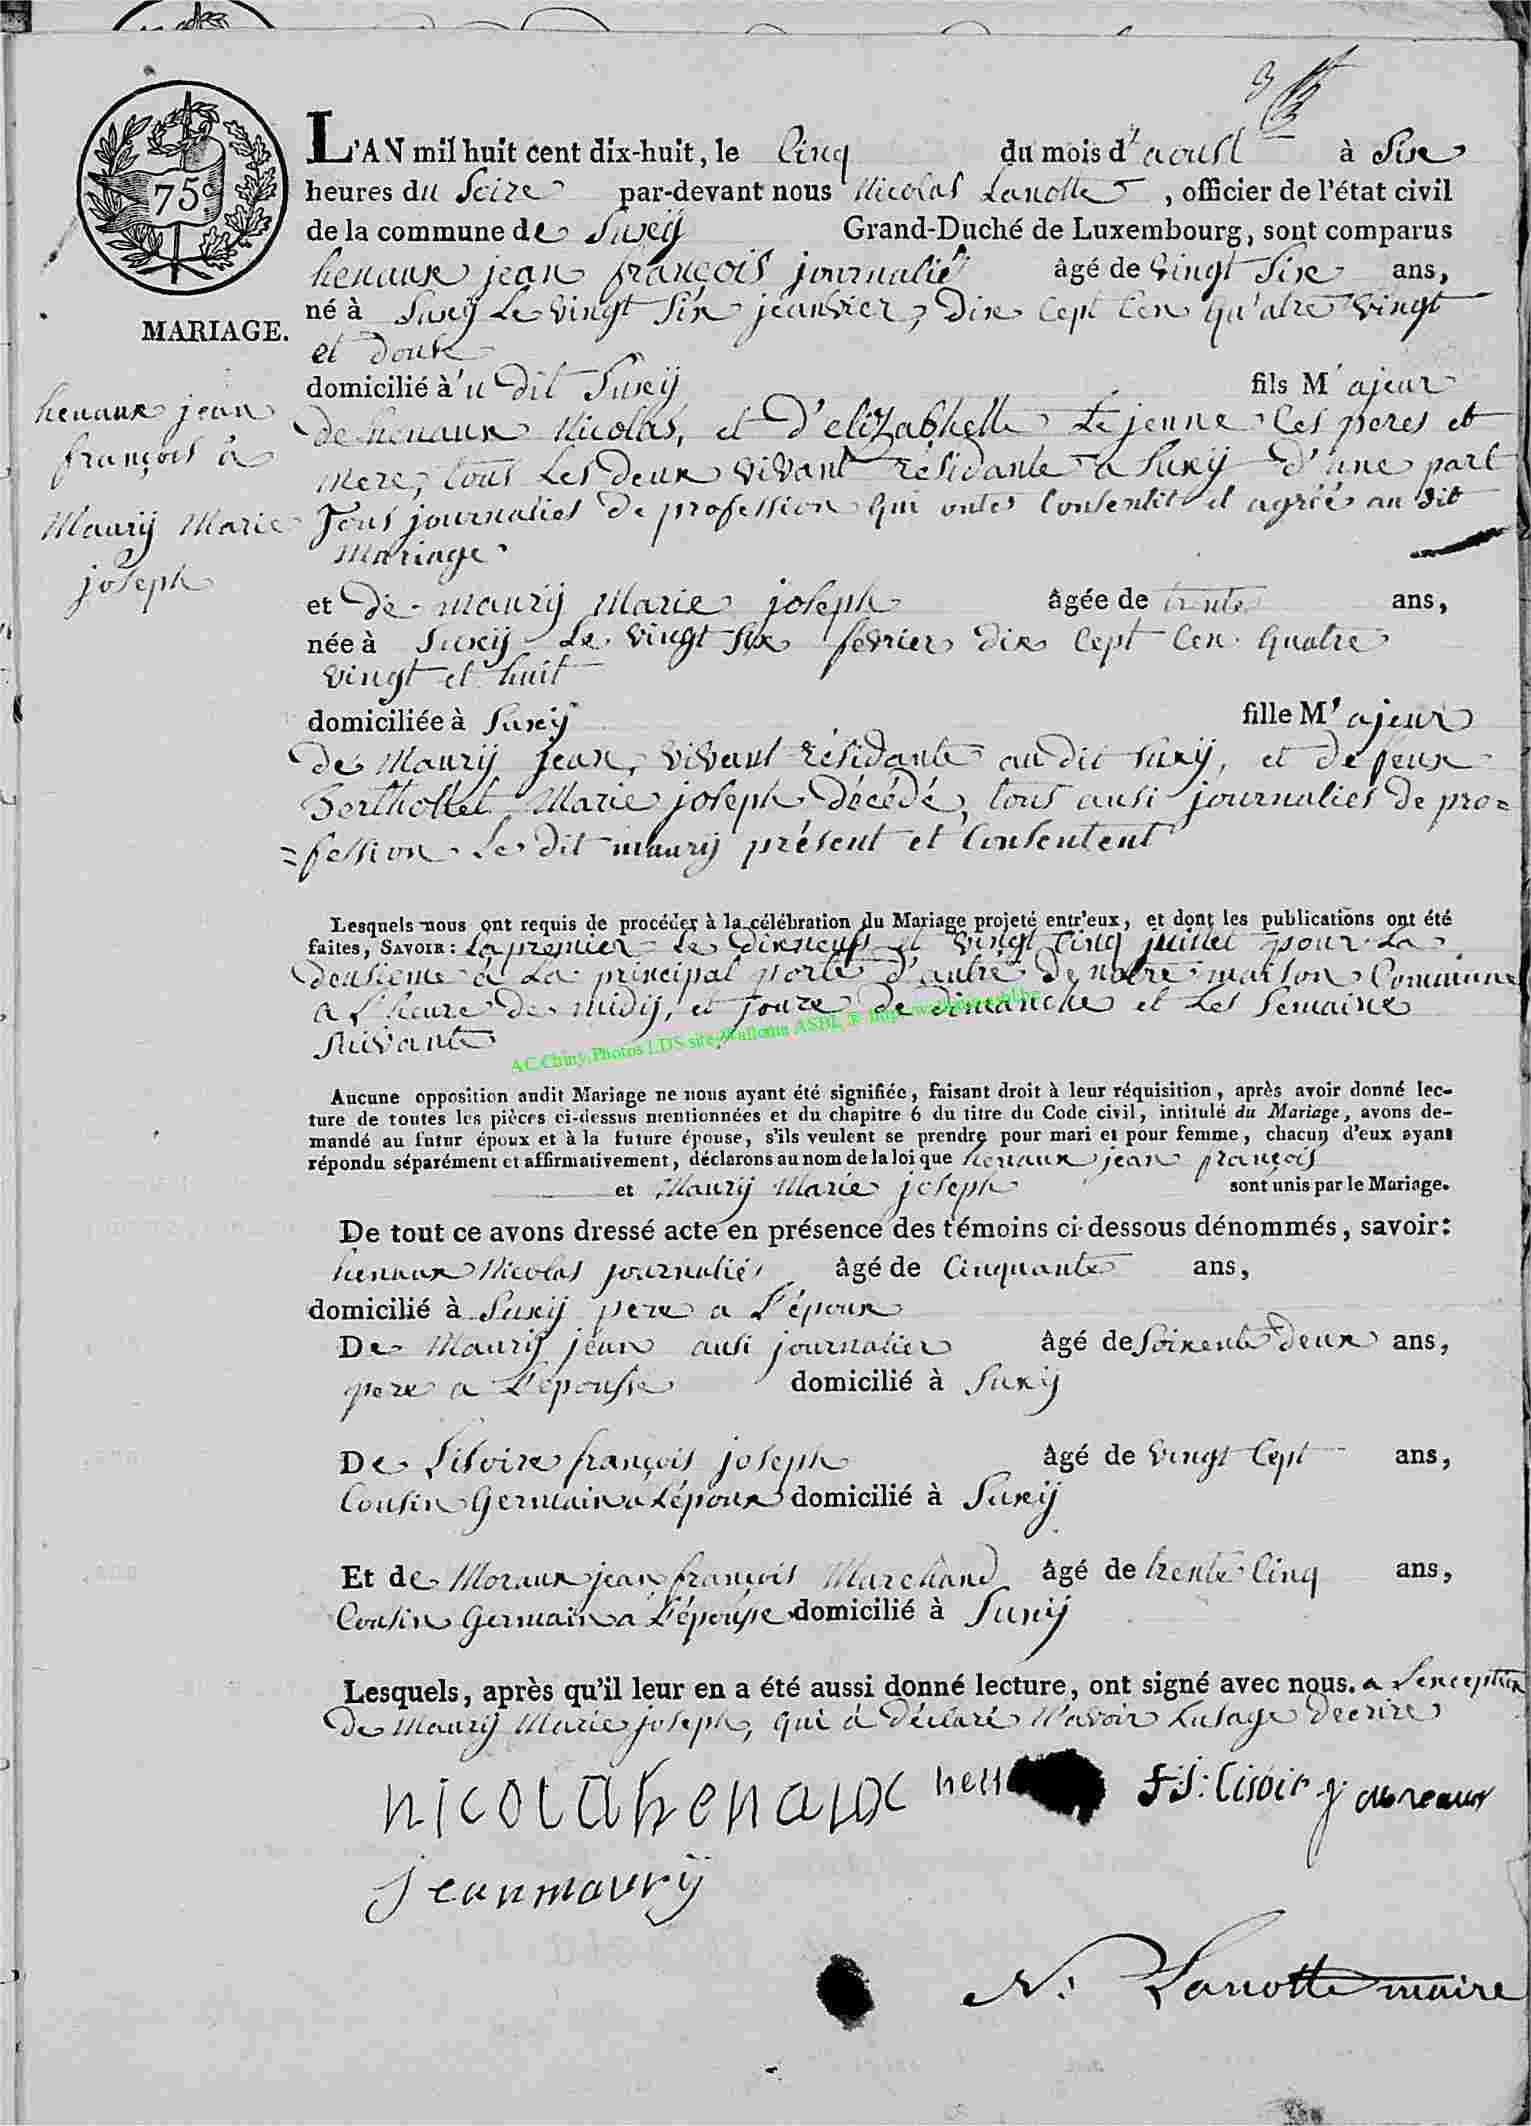 75c
L'AN mil huit cent dix-huit, le Cinq du mois d'aoust à Six
heures du Soire par-devant nous Nicolas Lanotte, officier de l'état civil
de la commune de Suxÿ Grand-Duché de Luxembourg, sont comparus
henaux jean françois journalié âgé de vingt Six ans,
né à Suxÿ Le vingt Six jeanvier, Dix Cept Cen qu'atre vingt
et douse
MARIAGE.
domicilié à'u dit Suxÿ fils M'ajeur
henaux jean
françois à
Maurÿ Marie
joseph
de henaux Nicolas, et d'elizabhette Le jenne Ces peres et
mere, tous Les deux vivant résidante a Suxÿ d'une part
Tous journaliés de profession qui ontes Consentit et agréé au dit
Mariage
et De maurÿ Marie joseph âgée de trente ans,
née à Suxÿ Le vingt Six fevrier Dix Cept Cen quatre
vingt et huit
domiciliée à Suxÿ fille M'ajeur
De Maurÿ jean, vivant résidante au dit Suxÿ, et de feux
Berthollet Marie joseph décédé, tous ausi journaliés de pro=
=fession Le dit maurÿ présent et Consentent
Lesquels nous ont requis de procéder à la célébration du Mariage projeté entr'eux, et dont les publications ont été
faites, SAVOIR: La premier Le Dixneuf et vingt Cinq juillet pour La
deusieme a La principal porte d'autré de notre maison Commune
a L'heure de midÿ, et joure de Dimanche et Les Semaine
Suivante
AC.Chiny.Photos LDS site
Aucune opposition audit Mariage ne nous ayant été signifiée, faisant droit à leur réquisition, après avoir donné lec-
ture de toutes les pièces ci-dessus mentionnées et du chapitre 6 du titre du Code civil, intitulé du Mariage, avons de-
mandé au futur époux et à la future épouse, s'ils veulent se prendre pour mari et pour femme, chacun d'eux ayant
répondu séparément et affirmativement, déclarons au nom de la loi que henaux jean françois
et Maurÿ Marie joseph sont unis par le Mariage.
De tout ce avons dressé acte en présence des témoins ci-dessous dénommés, savoir:
henaux Nicolas journaliés âgé de Cinquante ans,
domicilié à Suxÿ pere a L'époux
De Maurÿ jean ausi journalier âgé de Soixente deux ans,
pere a L'épousse domicilié à Suxÿ
De Lisoire françois joseph âgé de vingt Cept ans,
Cousin Germain a L'époux domicilié à Suxÿ
Et de Moraux jean françois Marchand âgé de trente Cinq ans,
Cousin Germain a L'épousse domicilié à Suxÿ
Lesquels, après qu'il leur en a été aussi donné lecture, ont signé avec nous. a L'exception
de Maurÿ Marie joseph, qui á déclaré n'avoir Lusage Decrire
nicola henaux hen F:j: Lisoir j moreaux
jean maurÿ
N: Lanotte maire